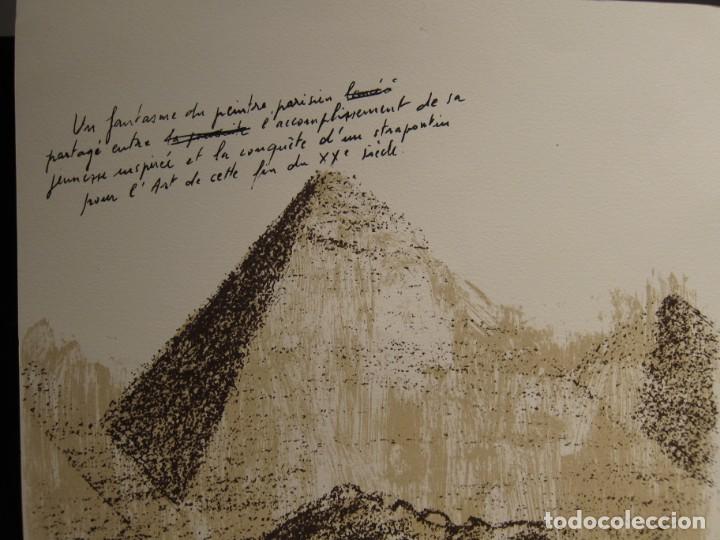 Un fantasme du peintre parisien
partagé entre l'accomplissement de sa
jeunesse inspirée et la conquête d'un strapontin
pour l'Art de cette fin du XXe siècle.
todocoleccion
todocoleccion.net